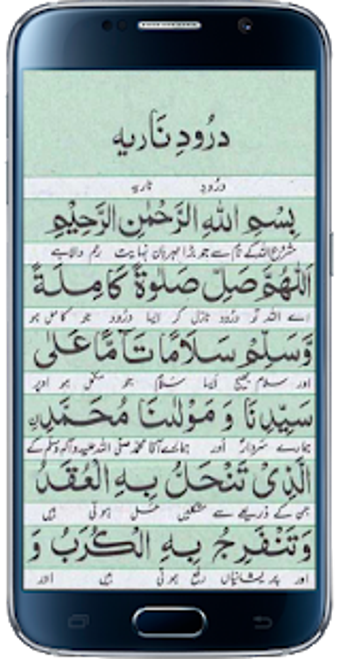 درُودِ نَاریه
درُودِ ناریه
بِسْمِ اللهِ الرَّحْمٰنِ الرَّحِيْمِ
شروع اللہ کے نام سے جو بڑا مہربان نہایت رحم والا ہے
اَللّٰهُمَّ صَلِّ صَلٰوةً كَامِلَةً
اے اللہ تو درود نازل کر ایسا درود جو کامل ہو
وَّسَلِّمْ سَلَامًا تَآمًّا عَلٰى
اور سلام بھیج ایسا سلام جو مکمل ہو اوپر
سَيِّدِنَا وَ مَوْلٰنَا مُحَمَّدِنِ
ہمارے سردار اور ہمارے آقا محمد صلی اللہ علیہ وآلہ وسلم کے
الَّذِىْ تَنْحَلُ بِهِ الْعُقَدُ
جن کے ذریعے سے مشکلیں حل ہوتی ہیں
وَتَنْفَرِجُ بِهِ الْكُرَبُ وَ
اور پریشانیاں رفع ہوتی ہیں اور